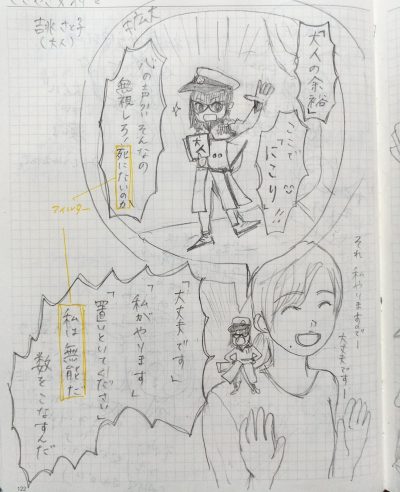 吉 さと子
(大人)
拡大
「大人の余裕」
ここで
「にこり」!!
心の声?そんなの
無視しろ!死にたいのか
大人
フィルター
それ 私やりますのでー
大丈夫ですー
「大丈夫です」
「私がやります」
「置いといてください」
私は無能だ
数をこなすんだ
122